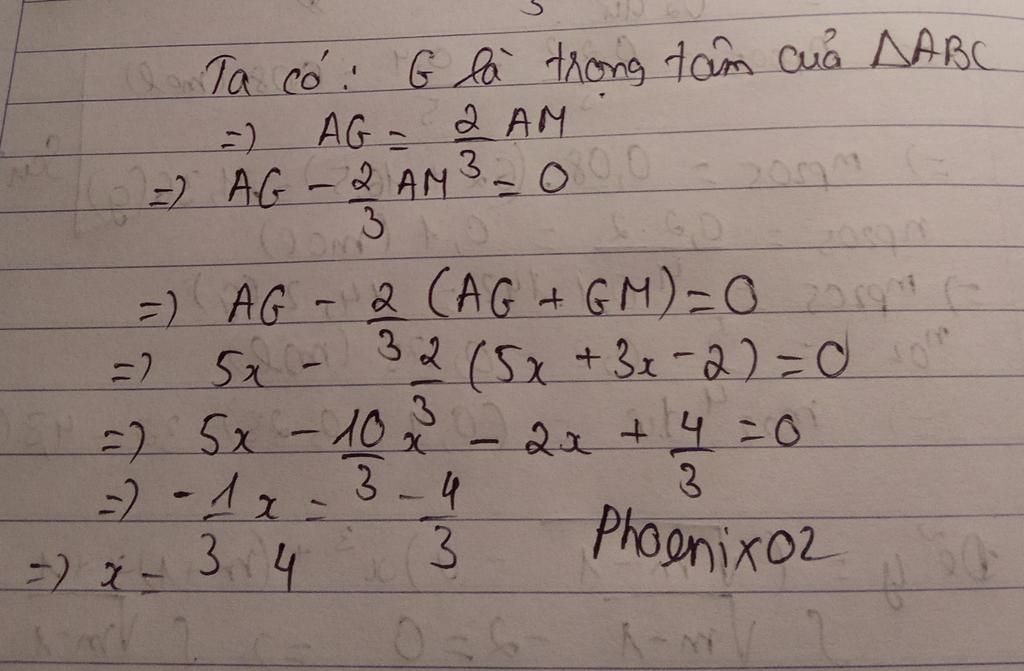 Ta có: G là trọng tâm của ΔABC
=) AG = 2/3 AM
=) AG - 2/3 AM = 0
=) AG - 2/3 (AG + GM) = 0
=) 5x - 2/3 (5x + 3x - 2) = 0
=) 5x - 10/3 x - 2x + 4/3 = 0
=) -1/3 x = -4/3
=) x = 4
Phoenix02